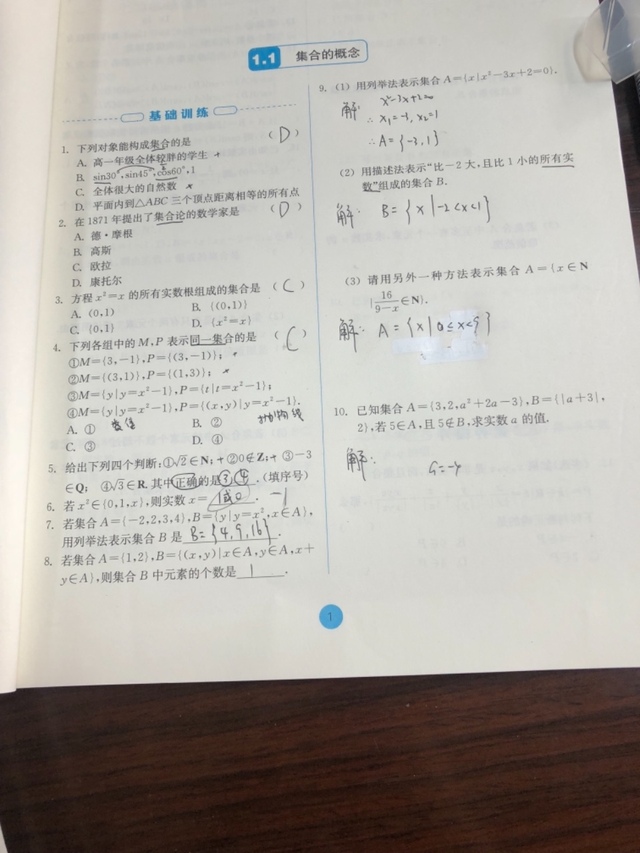 1.1 集合的概念
基础训练
1. 下列对象能构成集合的是 (D)
A. 高一年级全体较胖的学生 ×
B. sin30°,sin45°,cos60°,1
C. 全体很大的自然数 ×
D. 平面内到△ABC三个顶点距离相等的所有点
2. 在1871年提出了集合论的数学家是 (D)
A. 德·摩根
B. 高斯
C. 欧拉
D. 康托尔
3. 方程x²=x的所有实数根组成的集合是 (C)
A. (0,1) B. {(0,1)}
C. {0,1} D. {x²=x}
4. 下列各组中的M,P表示同一集合的是 (C)
①M={3,-1},P={(3,-1)};
②M={(3,1)},P={(1,3)};
③M={y|y=x²-1},P={t|t=x²-1};
④M={y|y=x²-1},P={(x,y)|y=x²-1}.
A. ① B. ② 抛物线
C. ③ D. ④
5. 给出下列四个判断:①√2∈N;②0∉Z;③-3
∈Q;④√3∈R.其中正确的是③④.(填序号)
6. 若x²∈{0,1,x},则实数x=1或0. -1
7. 若集合A={-2,2,3,4},B={y|y=x²,x∈A},
用列举法表示集合B是B={4,9,16}.
8. 若集合A={1,2},B={(x,y)|x∈A,y∈A,x+
y∈A},则集合B中元素的个数是 1 .
9. (1) 用列举法表示集合A={x|x²-3x+2=0}.
解: x²-3x+2=0
∴x₁=-3,x₂=1
∴A={-3,1}
(2) 用描述法表示“比-2大,且比1小的所有实
数”组成的集合B.
解: B={x|-2<x<1}
(3) 请用另外一种方法表示集合A={x∈N
|16/(9-x)∈N}.
解: A={x|0≤x<9}
10. 已知集合A={3,2,a²+2a-3},B={|a+3|,
2},若5∈A,且5∉B,求实数a的值.
解: a=-4
1